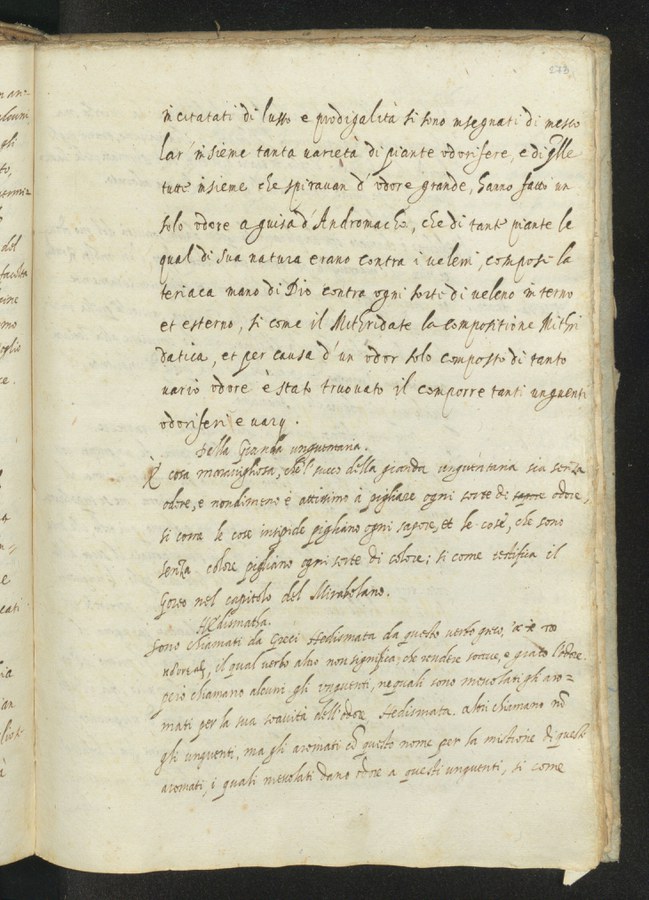 273
incitatati di lusso e prodigalità si sono insegnati di mesco
lar' insieme tanta varietà di piante odorifere, e di q̃lle
tutte insieme che spiravan d'odore grande, hanno fatto un
solo odore a guisa d'Andromache, che di tante piante le
qual di sua natura erano contra i veleni, compose la
teriaca mano di Dio contra ogni sorte di veleno interno
et esterno, si come il Mithridate la compositione Mithri
datica, et per causa d'un odor solo composto di tanto
vario odore è stato truovato il comporre tanti unguenti
odoriferi e varÿ.
Della Gianda unguentana.
È cosa maravighosa, che'l succo della gianda unguentana sia senza
odore, e nondimeno è attissimo à pigliare ogni sorte di sapore odore,
si come le cose insipide pigliano ogni sapore, et le cose, che sono
senza colore pigliano ogni sorte di colore; si come testifica il
nel capitolo del Mirabolano.
Hedismatha.
Sono chiamati da Greci Hedismata da questo verbo greco,
il qual verbo altro non significa, che rendere soave, e grato l'odore.
però chiamano alcuni gli unguenti, ne quali sono mescolati gli aro=
mati per la sua soavità dell'odore, Hedismata. altri chiamano nõ
gli unguenti, ma gli aromati cõ questo nome per la mistione di questi
aromati, i quali mescolati dano odore a questi unguenti, si come